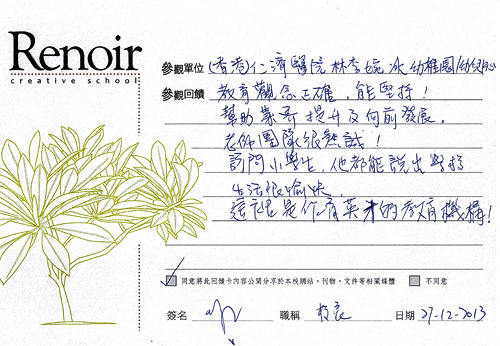 Renoir
creative school
參觀單位 (香港)仁濟醫院林李婉冰幼稚園/幼兒中心
參觀回饋 教育觀念正確,能堅持!
幫助業界提升及向前發展。
老師團隊很熱誠!
訪問小學生,他都能說出學校
生活很愉快。
這裡是作育英才的教育機構!
同意將此回饋卡內容公開分享於本校網站、刊物、文件等相關媒體 不同意
簽名 職稱 校長 日期 27-12-2013